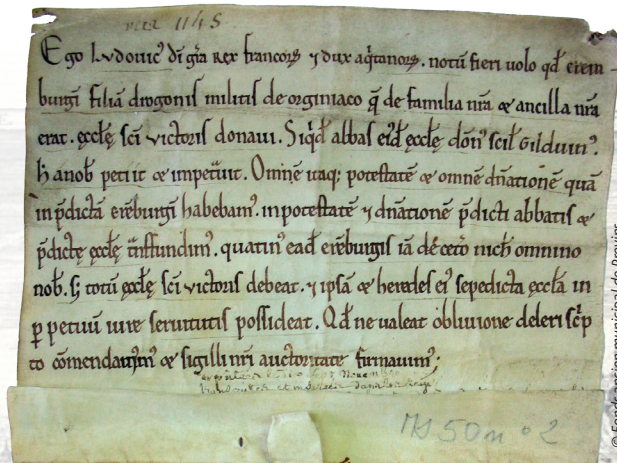 vers 1145
Ego Ludovic᾽ dī gr̄a rex francoꝝ ⁊ dux aq̄tanoꝝ. notū fieri uolo qđ erem-
burgē filiā drogonis militis de orginiaco q̄ de familia nr̄a & ancilla nr̄a
erat. ęcclę sc̄i victoris donaui. Siq̇đ abbas ei᾽đ ęcclę dōn᾽ scił Gilduin᾽.
h̄ a nob̄ petiit & impet̄uit. Om̄nē itaq; potestatē & omnē dn̄ationē quā
in p̄dictā erēburgē habebam᾽. in potestatē ⁊ dn̄ationē p̄dicti abbatis &
p̄dictę ęcclę t̄nsfundim᾽. quatin᾽ eađ erēburgis iā deceto nich̄ omnino
nob̄. s; totū ęcclę sc̄i victoris debeat. ⁊ ipsā & heredes ei᾽ sepedicta ęcclā in
ꝑpetuū iure seruitutis possideat. Qđ ne ualeat obliuione deleri sc̄p
to cōmendauim᾽ & sigilli nr̄i auctoritate firmauim᾽:
MS 50 n° 2
© Fonds ancien municipal de